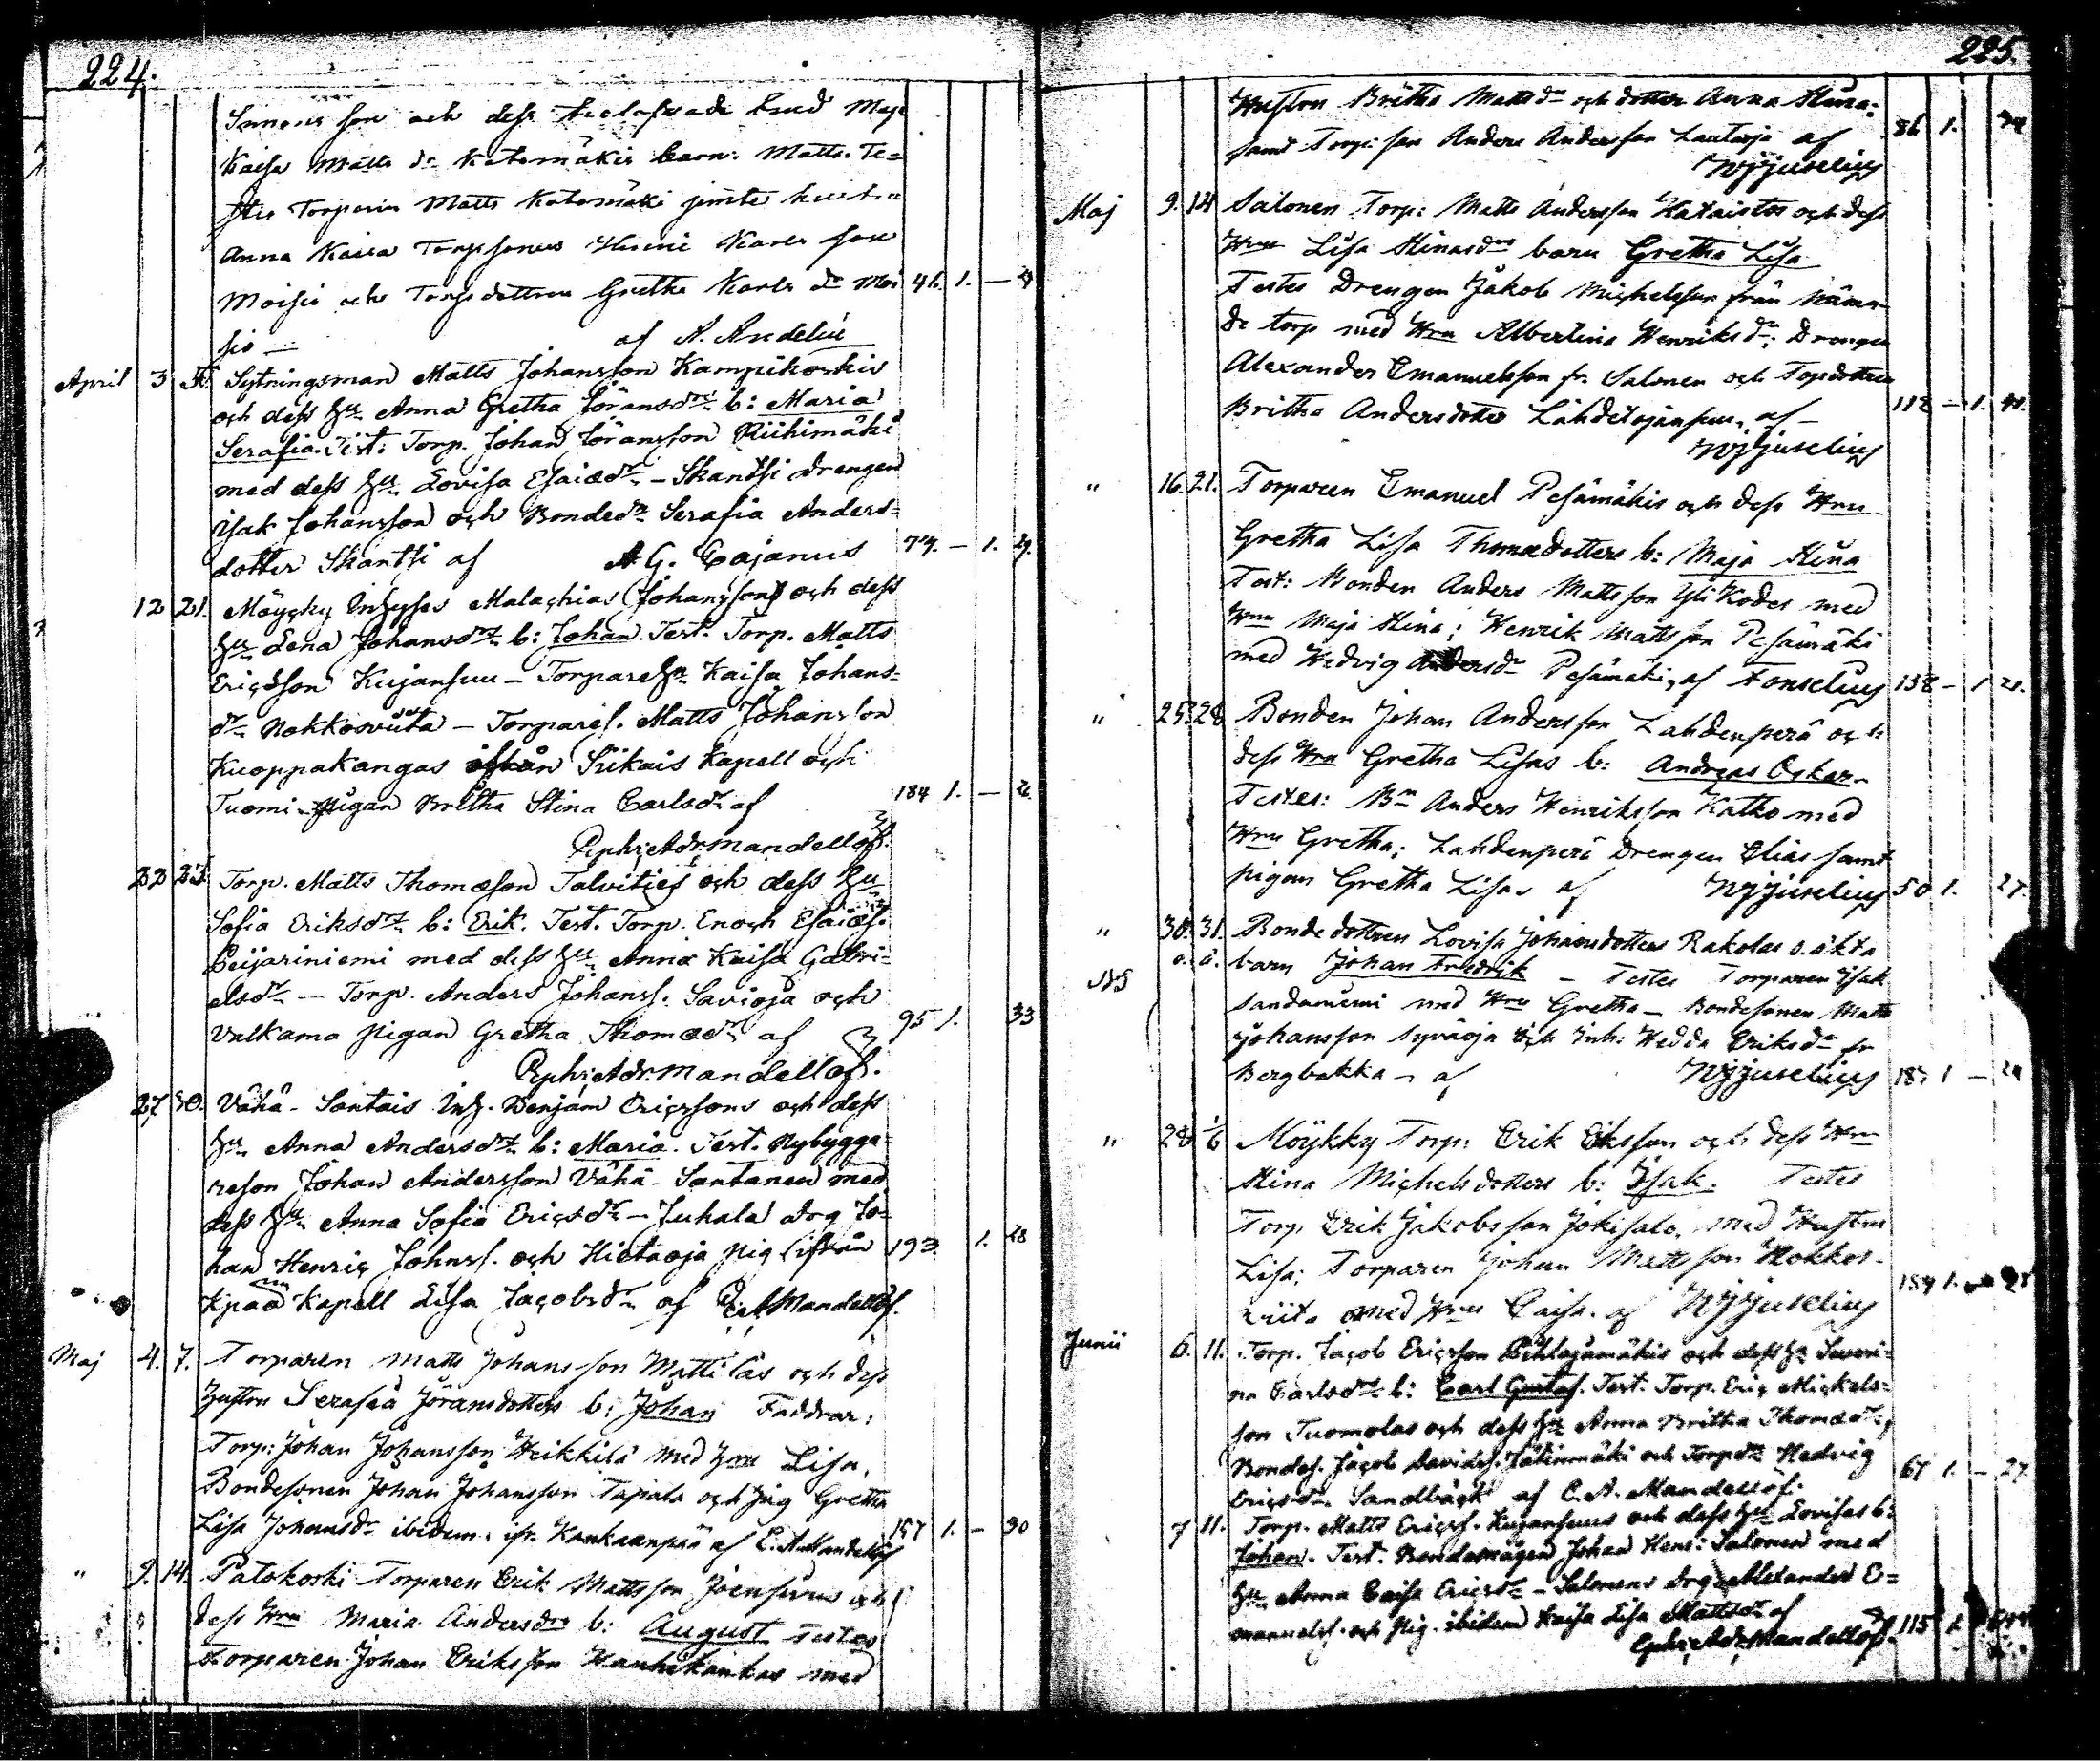 224.
Simons son och dess trolofvade brud Maja
Kaisa Matts dr Katomäkis barn: Matts. Te=
stes Torparen Matts Katomäki jemte hustrun
Anna Kaisa Torpsonen Karls son
Moisio och Torpdottren Gretha Karls dr Moi 46. 1. —
sio — af A.
April 3 Sytningsman Matts Johansson Kampikoskis
och dess hu Anna Gretha Jöransdrs b: Maria
Serafia. Test: Torp. Johan Jöransson Riihimäki
med dess hu Lovisa Esaiædr – Skantsi drengen
Isak Johansson och Bondedr Serafia Anders=
dotter Skantsi af A. G. Cajanus 79. — 1. 29.
12 21. Möycky Inhyses Malachias (Johansson) och dess
hu Lena Johansdrs b: Johan. Test. Torp. Matts
Ericsson Kujansuu – Torparehu Kaisa Johans=
dr Nokkosviita – Torpares. Matts Johansson
Kuoppakangas ifrån Siikais Kapell och
Tuomi pigan Britha Stina Carlsdr af 184 1. —
Ephr: Adr: Mandellöf.
22 25. Torp. Matts Thomæson Talvities och dess hu
Sofia Eriksdrs b: Erik. Test. Torp. Enoch Esaiæs.
Peijariniemi med dess hu Anna Kaisa Gabri=
elsdr – Torp. Anders Johanss. Savioja och
Valkama pigan Gretha Thomædr af 95 1. 33
Ephr: Adr. Mandellöf.
27 30. Vähä-Santais Inh. Benjam Ericssons och dess
hu Anna Andersdrs b: Maria. Test. Nybygga=
reson Johan Andersson Vähä-Santanen med
dess hu Anna Sofia Ericsdr – Juhala drg Jo=
han Henric Johnss. och Hietaoja pig ifrån 193. 1. 28
Kapell Lisa Jacobsdr af Mandellöf.
Maj 4. 7. Torparen Matts Johansson Mattilas och dess
hustru Serafia Jöransdotters b: Johan Faddrar:
Torp: Johan Johansson Heikkilä med hru Lisa,
Bondesonen Johan Johansson Tapiala och pig Gretha
Lisa Johansdr ibidem. ifr. Kankaanpää af E. A. Mandellöf 157 1. – 30
" 9. 14. Patokoski Torparen Erik Mattsson Joensuus och
dess Hru Maria Andersdrs b: August Testes
Torparen Johan Eriksson Hanhikankas med
225.
Hustrun Britha Mattsdr och dotter Anna Stina:
samt Torp: son Anders Andersson Lautaoja af 86 1.
Wjjuselius
Maj 9. 14 Salonen Torp: Matts Andersson Kataistos och dess
Hrus Lisa Stinasdrs barn Gretha Lisa
Testes Drengen Jakob Michelsson från nämn-
de torp med Hru Albertina Henriksdr; Drengen
Alexander Emanuelsson fr. Salonen och Torpdottren
Britha Andersdotter Lähdetojansuu, af – 112 – 1.
Wjjuselius
" 16. 21. Torparen Emanuel Pesämäkis och dess Hru
Gretha Lisa Thomædotters b: Maja Stina
Test: Bonden Anders Mattsson Yli Kodes med
Hru Maja Stina; Henrik Mattsson Pesämäki
med Hedvig Andersdr Pesämäki, af Fonselius 138 – 1 21.
" 25. 28. Bonden Johan Andersson Lahdenperä och
dess Hru Gretha Lisas b: Andreas Oskar.
Testes: Bn Anders Henriksson Katko med
Hru Gretha; Lahdenperä Drengen Elias samt
pigan Gretha Lisa af Wjjuselius 50 1. 27.
" 30. 31. Bondedottren Lovisa Johansdotters Rakolas o. äkta
o. ä. barn Johan Fredrik – Testes Torparen Isak
Sandaniemi med Hru Gretha – Bondesonen Matts
Johansson Syväoja och Inh: Hedda Eriksdr fr
Bergbakka – af Wjjuselius 187 1 –
" 28 1/6 Möykky Torp: Erik Eksson och dess Hru
Stina Michelsdotters b: Isak. Testes
Torp Erik Jakobsson Jokisalo, med Hustru
Lisa; Torparen Johan Mattsson Nokkos-
viita med Hru Caisa. af Wjjuselius 184 1.
Junii 6. 11. Torp. Jacob Ericsson Pihlajamäkis och dess hu Severi=
na Carlsdrs b: Carl Gustaf. Test. Torp. Eric Mickels=
son Tuomolas och dess hu Anna Britha Thomædr;
Bondes. Jacob Davids. Jätinmäki och Torpdr Hedvig
Ericsdr Sandbäck af E. A. Mandellöf. 67 1. – 27.
7 11. Torp. Matts Ericss. Kujansuus och dess hu Lovisas b:
Johan. Test. Bondemågen Johan Henr: Salonen med
hu Anna Caisa Ericsdr – Salonens drg Alexander E=
manuels. och pig. ibidem Kaisa Lisa Mattsdr af 115 1.
Ephr: Adr: Mandellöf.